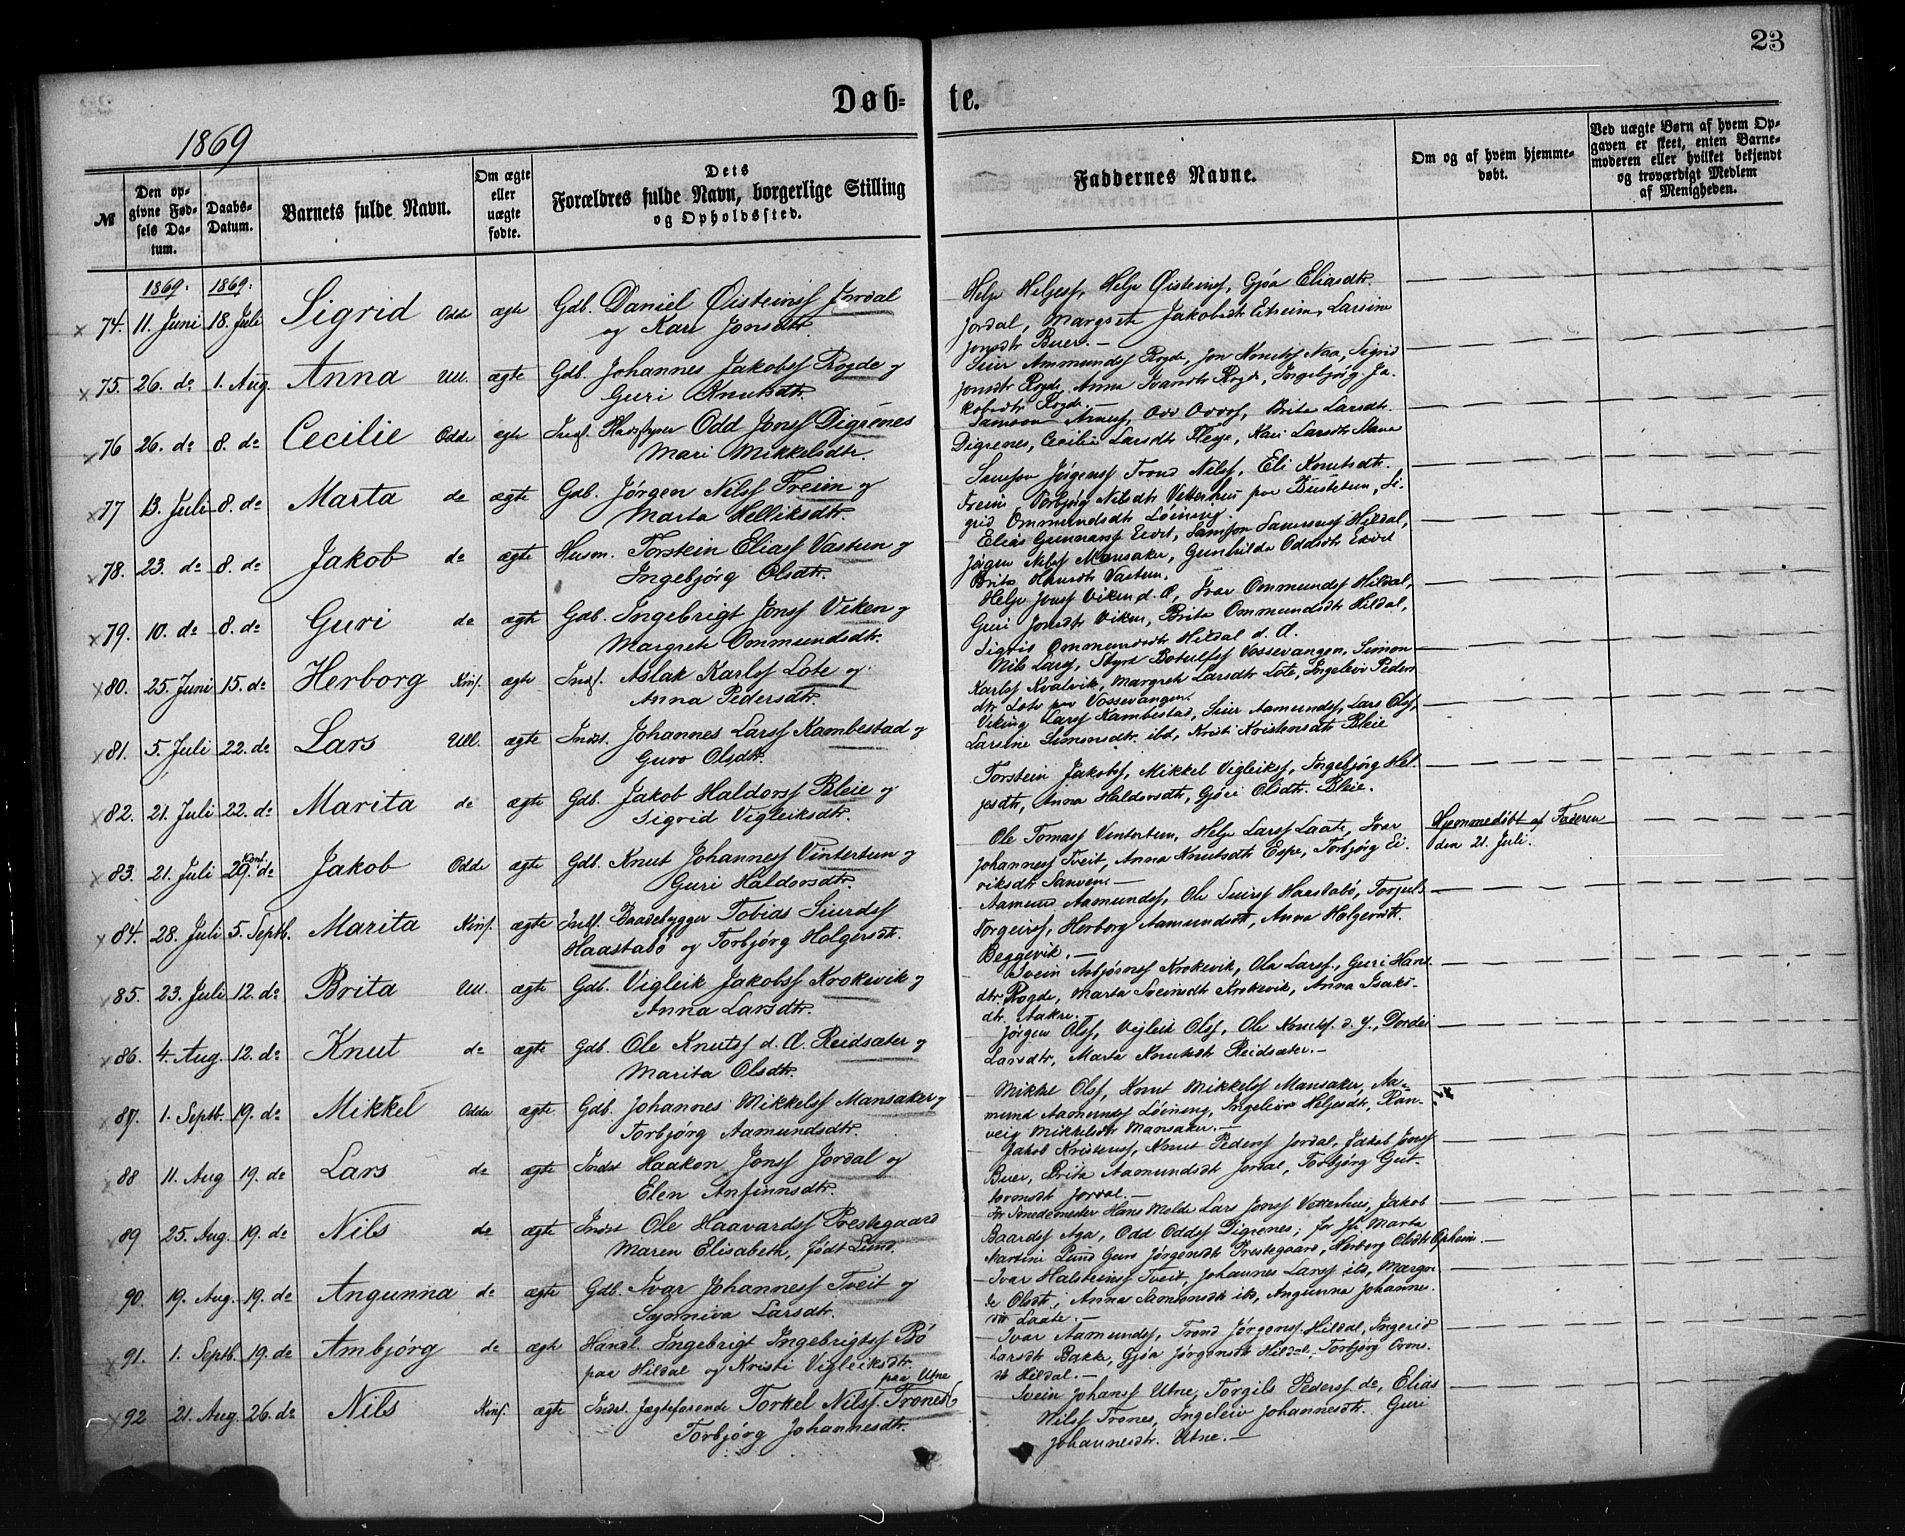 23
Døb-te.
1869
№
Den opgivne Fødsels Datum.
Daabs-Datum.
Barnets fulde Navn.
Om ægte eller uægte fødte.
Dets Forældres fulde Navn, borgerlige Stilling og Opholdssted.
Faddernes Navne.
Om og af hvem hjemmedøbt.
Ved uægte Børn af hvem Opgaven er skeet, enten Barnemoderen eller hvilket bekjendt og troværdigt Medlem af Menigheden.
1869. 1869.
74. 11. Juni 18. Juli Sigrid Odde ægte Gdb. Daniel Øisteinsf Jordal
og Kari Jonsdtr.
Helje Heljesf, Helje Øisteinsf, Gjøa Eliasdtr.
Jordal, Margrete Jakobsdtr Eitreim, Larsine
Jonsdtr Buer.—
75. 26. do 1. Aug. Anna Ull. ægte Gdb. Johannes Jakobsf Rogde og
Guri Knutsdtr.
Siur Ammundsf Rogde, Jon Knutsf Naa, Sigrid
Jonsdtr Rogde, Anna Ivarsdtr Rogde, Ingebjørg Ja-
kobsdtr Rogde.—
76 26. do 8. do Cecilie Odde ægte Indf. Odd Jonsf Digrenes
Mari Mikkelsdtr.
Samson Arnesf, Odd Oddsf, Brita Larsdtr.
Digrenes, Cecilia Larsdtr Fleye, Kari Larsdtr Mane
77 13. Juli 8. do Marta de ægte Gdb. Jørgen Nilsf Freim og
Marta Helliksdtr.
Samson Jørgensf Trond Nilsf, Eli Knutsdtr.
Freim Torbjørg Nilsdtr Vetterhus paa Bustetun, Si-
grid Ommundsdtr Löining.
78. 23. do 8. do Jakob de ægte Husm. Torstein Eliasf Vastun og
Ingebjørg Olsdtr.
Elias Gunnarsf Eidet, Samson Samsonsf Hildal,
Jørgen Nilsf Mansaker, Gunhilda Oddsdtr Eidet
Brita Hansdtr Vastun.
79. 10. do 8. do Guri de ægte Gdb. Ingebrigt Jonsf Viken og
Margrete Ommundsdtr.
Helje Jonsf Viken d. Æ, Ivar Ommundsf Hildal,
Guri Jonsdtr Viken, Brita Ommundsdtr Hildal,
Sigtris Ommundsdtr Hildal d. Æ.
80. 25. Juni 15. do Herborg Kinf. ægte Indf. Aslak Karlsf Lote og
Anna Pedersdtr.
Nils Larsf, Styrk Botulfsf Vossevangen, Simon
Karlsf Kvalvik, Margreta Larsdtr Lote, Ingeleiv Peders
dtr Lote paa Vossevangen.
81. 5. Juli 22. do Lars Ull. ægte Indst. Johannes Larsf Kambestad og
Guro Olsdtr.
Viking Larsf Kambestad, Siur Aamundsf, Lars Olsf,
Larsine Simonsdtr. ibd, Kristi Kristensdtr Bleie
82. 21. Juli 22. do Marita de ægte Gdb. Jakob Haldorsf Bleie og
Sigrid Vigleiksdtr.
Torstein Jakobsf, Mikkel Vigleiksf, Ingebjørg Hel-
jesdtr, Anna Haldorsdtr, Gjøri Olsdtr. Bleie.
83. 21. Juli 29. do Jakob Odde ægte Gdb. Knut Johannesf Vintertun og
Guri Haldorsdtr.
Ole Tomasf Vintertun, Helje Larsf Laate, Ivar
Johannesf Tveit, Anna Knutsdtr Espe, Torbjørg Ei-
riksdtr Sanven.—
Hjemmedøbt af Faderen
den 21. Juli.
84. 28. Juli 5. Septb. Marita Kinf. ægte Indf. Baadebygger Tobias Siurdsf
Haastabø og Torbjørg Holgersdtr.
Aamund Aamundsf, Ole Siursf Haastabø, Torgils
Torgeirsf, Herborg Aamundsdtr, Anna Holgersdtr.
Beggevik.—
85. 23. Juli 12. do Brita Ull. ægte Gdb. Vigleik Jakobsf Krokevik og
Anna Larsdtr.
Svein Asbjørnsf Krokevik, Ola Larsf, Guri Hans-
dtr. Rogde, Marta Sveinsdtr Krokevik, Anna Isaks-
dtr. Aakre.
86. 4. Aug. 12. do Knut de ægte Gdb. Ole Knutsf d. Æ. Reidsæter og
Marita Olsdtr.
Jørgen Olsf, Vigleik Olsf, Ole Knutsf. d. Y., Dordei
Larsdtr, Marta Knutsdtr Reidsæter.—
87. 1. Septb. 19. do Mikkel Odda ægte Gdb. Johannes Mikkelsf Mansaker og
Torbjørg Aamundsdtr.
Mikkel Olsf, Knut Mikkelsf Mansaker, Aa-
mund Aamundsf Löining, Ingeleiv Heljesdtr, Ran-
veig Mikkelsdtr Mansaker.—
88 11. Aug 19. do Lars de ægte Indst Haakon Jonsf Jordal og
Elen Anfinnsdtr.
Jakob Kristensf, Knut Pedersf Jordal, Jakob Jonsf
Buer, Brita Aamundsdtr Jordal, Torbjørg Gut-
tormsdtr Jordal.—
89 25. Aug. 19. do Nils de ægte Indst Ole Haavardsf Prestegaard
Maren Elisabeth, født Lund.
Hr Smedemester Hans Melde Lars Jonsf Vetterhus, Jakob
Baardsf Aga, Odd Oddsf Digrenes; Marta
Martine Lund Guro Jørgensdtr Prestegaard, Herborg Olsdtr Opheim.—
90. 19. Aug. 19. do Angunna de ægte Gdb. Ivar Johannesf Tveit og
Synneva Larsdtr.
Ivar Halsteinsf Tveit, Johannes Larsf ib, Margre-
te Olsdtr, Anna Samsonsdtr ib, Angunna Johannes-
dtr Laate.—
91. 1. Septb. 19. do Ambjørg de ægte Handl. Ingebrigt Ingebrigtsf Bø
paa Hildal og Kristi Vigleiksdtr.
Ivar Aamundsf, Trond Jørgensf Hildal, Ingerid
Larsdtr Bakke, Gjøa Jørgensdtr Hildal, Torbjørg Orms-
dtr Hildal.—
92 21. Aug. 26. do Nils Kinf. ægte Indst. Jægtefarende Torkel Nilsf. Trones
paa Utne
Torbjørg Johannesdtr.
Svein Johansf Utne, Torgils Pedersf de, Elias
Nilsf Trones, Ingeleiv Johannesdtr. Guri
Johannesdtr. Utne.—